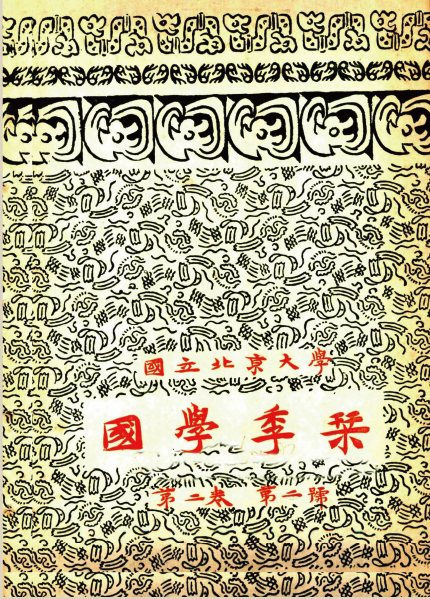 國立北京大學
國學季栞
第二卷 第二號